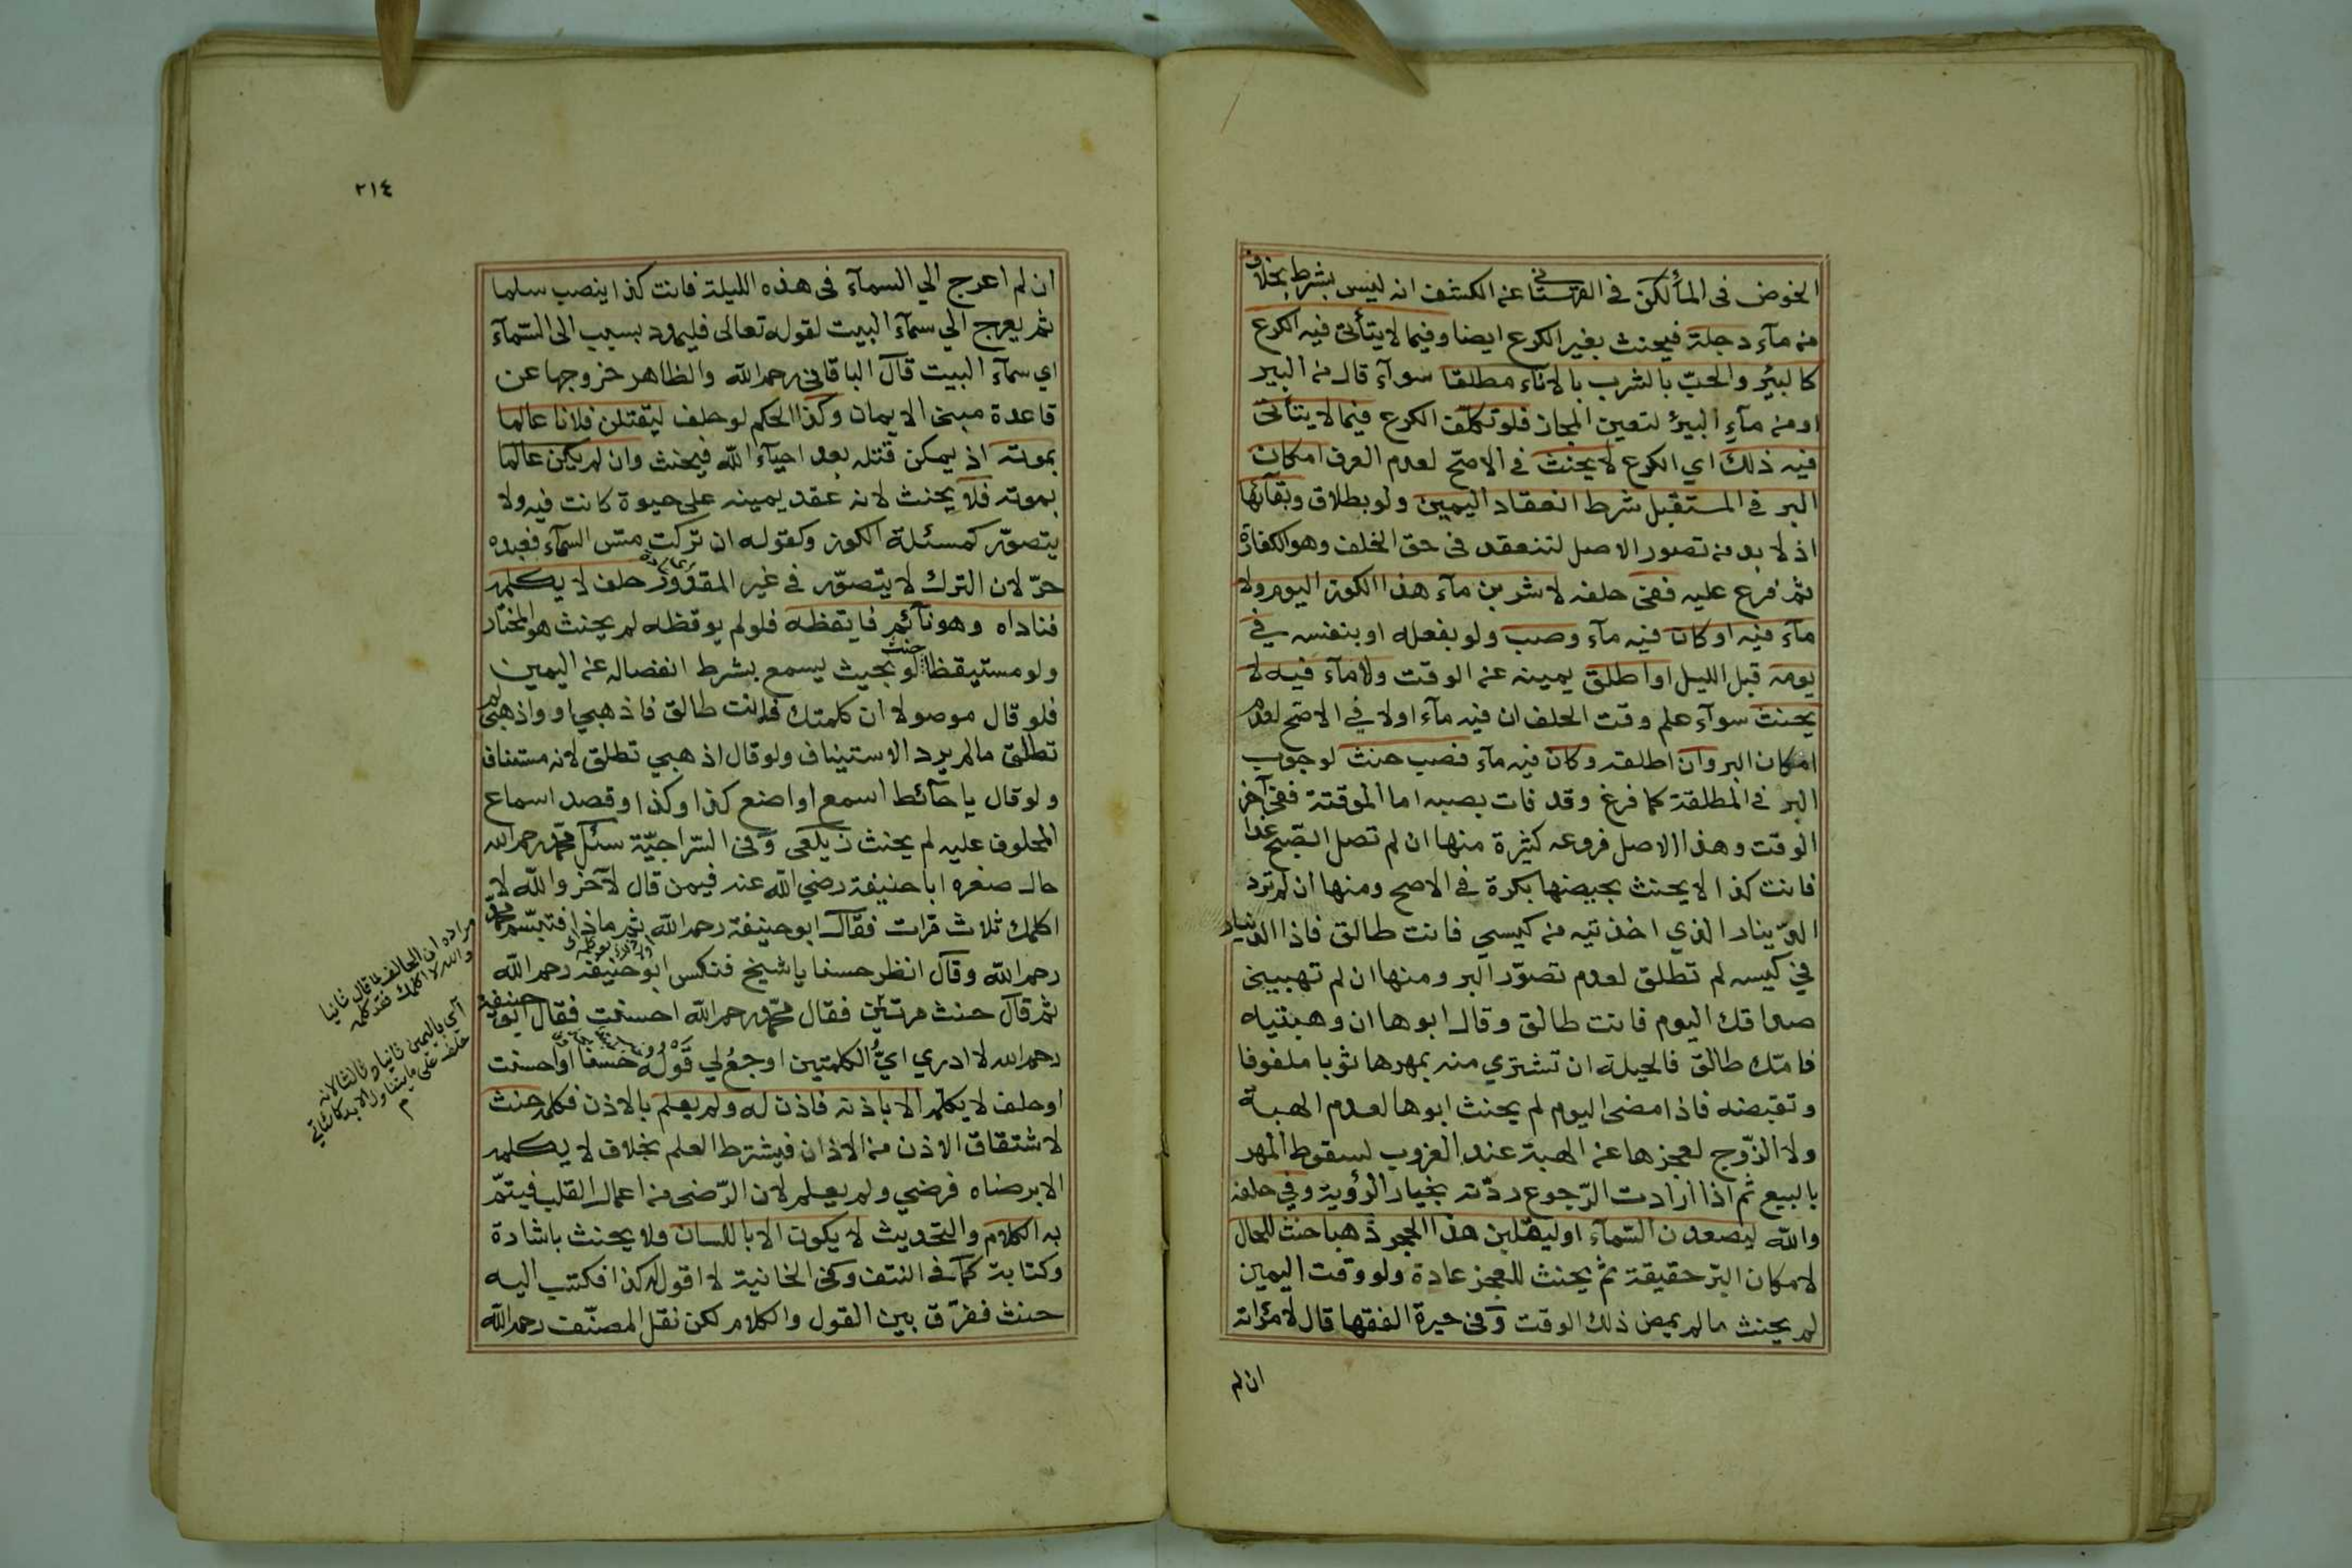 الخوض في المأ لكن في القهستاني عن الكشف انه ليس بشرط بخلاف
من مآء دجلة فيحنث بغير الكرع ايضا وفيما لا يتأتى فيه الكرع
كالبئر والحبّ بالشرب بالاناء مطلقا سوآء قال من البير
او من مآء البير لتعين المجاز فلو تكلّف الكرع فيما لا يتأتى
فيه ذلك اي الكرع لا يحنث في الاصحّ لعدم العرف امكان
البر في المستقبل شرط انعقاد اليمين ولو بطلاق وبقآئها
اذ لا بد من تصور الاصل لتنعقد في حق الخلف وهو الكفارة
ثم فرع عليه ففي حلفه لاشربن مآء هذا الكوز اليوم ولا
مآء فيه او كان فيه مآء وصب ولو بفعله او بنفسه في
يومه قبل الليل او اطلق يمينه عن الوقت ولا مآء فيه لا
يحنث سوآء علم وقت الحلف ان فيه مآء اولا في الاصح لعدم
امكان البر وان اطلقه وكان فيه مآء فصب حنث لوجوب
البر في المطلقة كما فرغ وقد فات بصبه اما الموقتة ففي آخر
الوقت وهذا الاصل فروعه كثيرة منها ان لم تصل الصّبح غدا
فانت كذا لا يحنث بحيضها بكرة في الاصح ومنها ان لم تردّ
الدّينار الذي اخذتيه من كيسي فانت طالق فاذا الدينار
في كيسه لم تطلق لعدم تصوّر البر ومنها ان لم تهبيني
صداقك اليوم فانت طالق وقال ابوها ان وهبتيه
فامّك طالق فالحيلة ان تشتري منه بمهرها ثوبا ملفوفا
وتقبضه فاذا مضى اليوم لم يحنث ابوها لعدم الهبة
ولا الزّوج لعجزها عن الهبة عند الغروب لسقوط المهر
بالبيع ثم اذا ارادت الرّجوع ردّته بخيار الرؤية وفي حلفه
والله ليصعدن السّمآء او ليقلبن هذا الحجر ذهبا حنث للحال
لامكان البرّ حقيقة ثم يحنث للعجز عادة ولو وقت اليمين
لم يحنث ما لم يمض ذلك الوقت وفي حيرة الفقها قال لامرأته
ان لم
٢١٤
ان لم اعرج الي السمآء في هذه الليلة فانت كذا ينصب سلما
ثم يعرج الي سمآء البيت لقوله تعالى فليمدد بسبب الى السّمآء
اي سمآء البيت قال الباقاني رحمه الله والظاهر خروجها عن
قاعدة مبنى الايمان وكذا الحكم لو حلف ليقتلن فلانا عالما
بموته اذ يمكن قتله بعد احيآء الله فيحنث وان لم يكن عالما
بموته فلا يحنث لانه عقد يمينه على حيوة كانت فيه ولا
يتصوّر كمسئلة الكوز وكقوله ان تركت مسّ السمآء فعبده
حرّ لان الترك لا يتصوّر في غير المقدور حلف لا يكلمه
فناداه وهو نآئم فايقظه فلو لم يوقظه لم يحنث هو المختار
ولو مستيقظا حنث لو بحيث يسمع بشرط انفصاله عن اليمين
فلو قال موصولا ان كلمتك فانت طالق فاذهبي او واذهبي لم
تطلق ما لم يرد الاستيناف ولو قال اذهبي تطلق لانه مستئناف
ولو قال يا حآئط اسمع او اصنع كذا وكذا وقصد اسماع
المحلوف عليه لم يحنث زيلعي وفي السّراجيّة سئل محمّد رحمه الله
حال صغره ابا حنيفة رضي الله عنه فيمن قال لآخر والله لا
اكلمك ثلاث مرات فقال ابو حنيفة رحمه الله ثم ماذا فتبسّم محمد
رحمه الله وقال انظر حسنا يا شيخ فنكس ابو حنيفة رحمه الله
ثم قال حنث مرتين فقال محمّد رحمه الله احسنت فقال ابو حنيفة
رحمه الله لا ادري ايّ الكلمتين اوجع لي قوله حسنا او احسنت
او حلف لا يكلّمه الا باذنه فاذن له ولم يعلم بالاذن فكلمه حنث
لاشتقاق الاذن من الاذان فيشترط العلم بخلاف لا يكلمه
الا برضاه فرضي ولم يعلم لان الرّضى من اعمال القلب فيتمّ
به الكلام والتحديث لا يكون الا باللسان ولا يحنث باشارة
وكتابة كما في النتف وفي الخانية لا اقول له كذا فكتب اليه
حنث ففرّق بين القول والكلام لكن نقل المصنّف رحمه الله
مراده ان الحالف لما قال ثانيا
والله لا اكلمك فقد كلمه
اى باليمين ثانيا وثالثا لانه